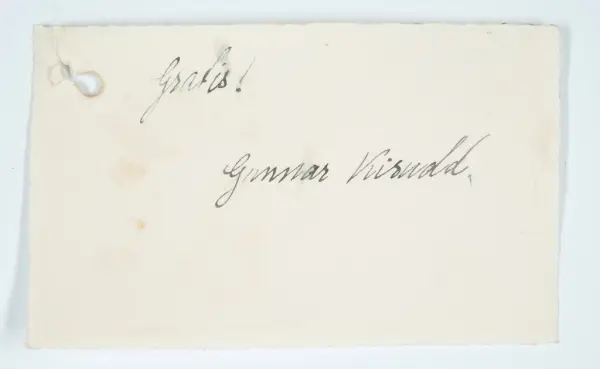 Gratis!
Gunnar Kirudd.